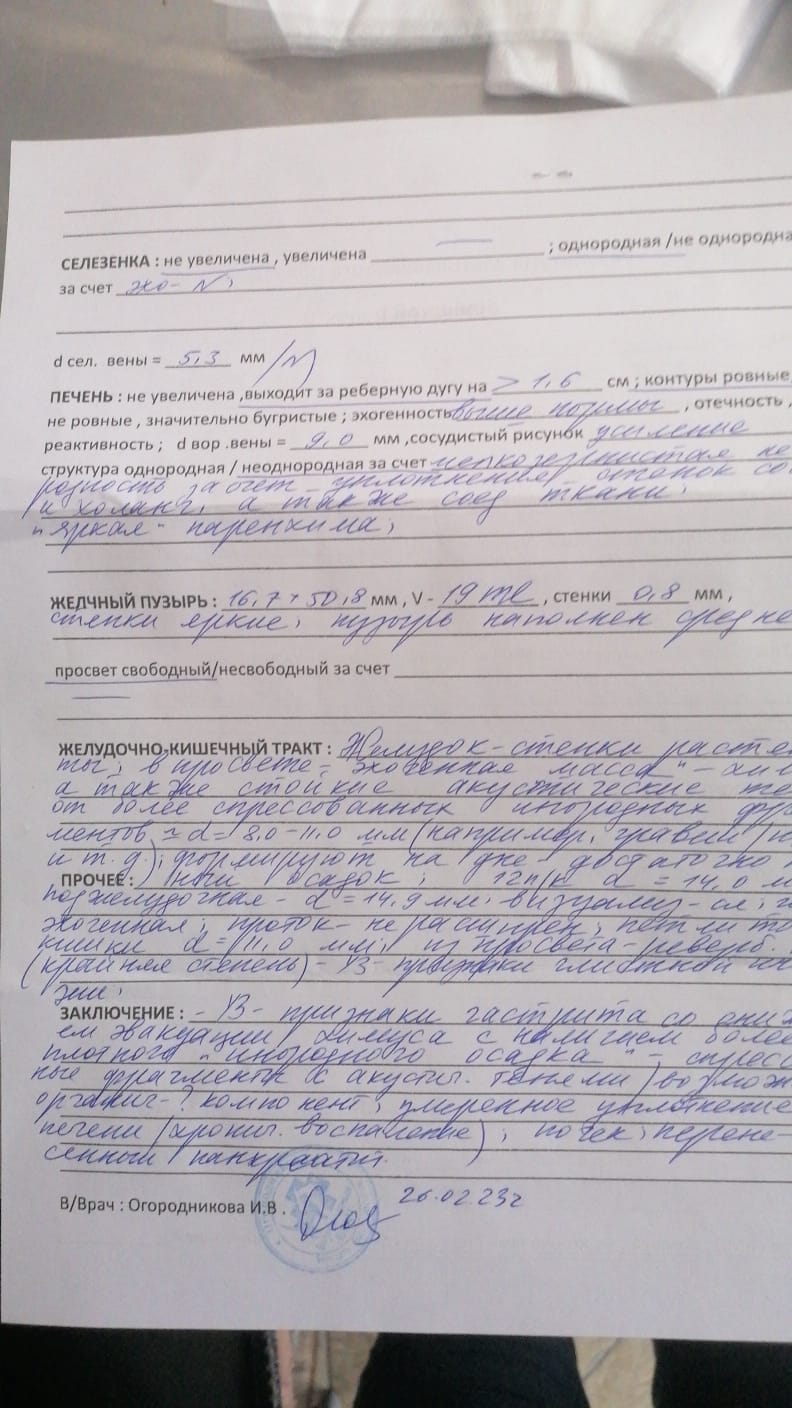 СЕЛЕЗЕНКА : не увеличена , увеличена ; однородная /не однородна
за счет эхо- N ;
d сел. вены = 5,3 мм /N
ПЕЧЕНЬ : не увеличена ,выходит за реберную дугу на > 1,6 см ; контуры ровные,
не ровные , значительно бугристые ; эхогенность выше нормы , отечность ,
реактивность ; d вор .вены = 9,0 мм ,сосудистый рисунок усиление
структура однородная / неоднородная за счет мелкозернистая не
родность за счет уплотнения стенок со
и холанг, а также соед ткани.
"яркая" паренхима,
ЖЕДЧНЫЙ ПУЗЫРЬ : 16,7 * 50,8 мм , V - 19 ml , стенки 0,8 мм ,
стенки яркие, пузырь наполнен средне
просвет свободный/несвободный за счет
ЖЕЛУДОЧНО-КИШЕЧНЫЙ ТРАКТ : Желудок-стенки растя
ты; в просвете- "эхогенная масса" - хи
а также стойкие акустические те
от более спрессованных инородных фра
ментов ≈ d= 8,0-11,0 мм (например, гравий /
и т.д.), формируют на дне- достаточно
ПРОЧЕЕ : осадок ; 12п/к d = 14,0 м
поджелудочная - d = 14,9 мм, визуализ-ся,
эхогенная; проток- не расширен; петли то
кишки d= 11,0 мм, из просвета- реверб.
(крайняя степень)- УЗ- признаки глистной
зии.
ЗАКЛЮЧЕНИЕ : - УЗ- признаки гастрита со сниж
ем эвакуации химуса с наличием более
плотного "инородного осадка" - спресс
ные фрагменты с акустич. тенями /возмож
органич-? компонент; умеренное уплотнение
печени (хронич. воспаление); почек; перене-
сенный панкреатит.
В/Врач : Огородникова И.В . 26.02.23г